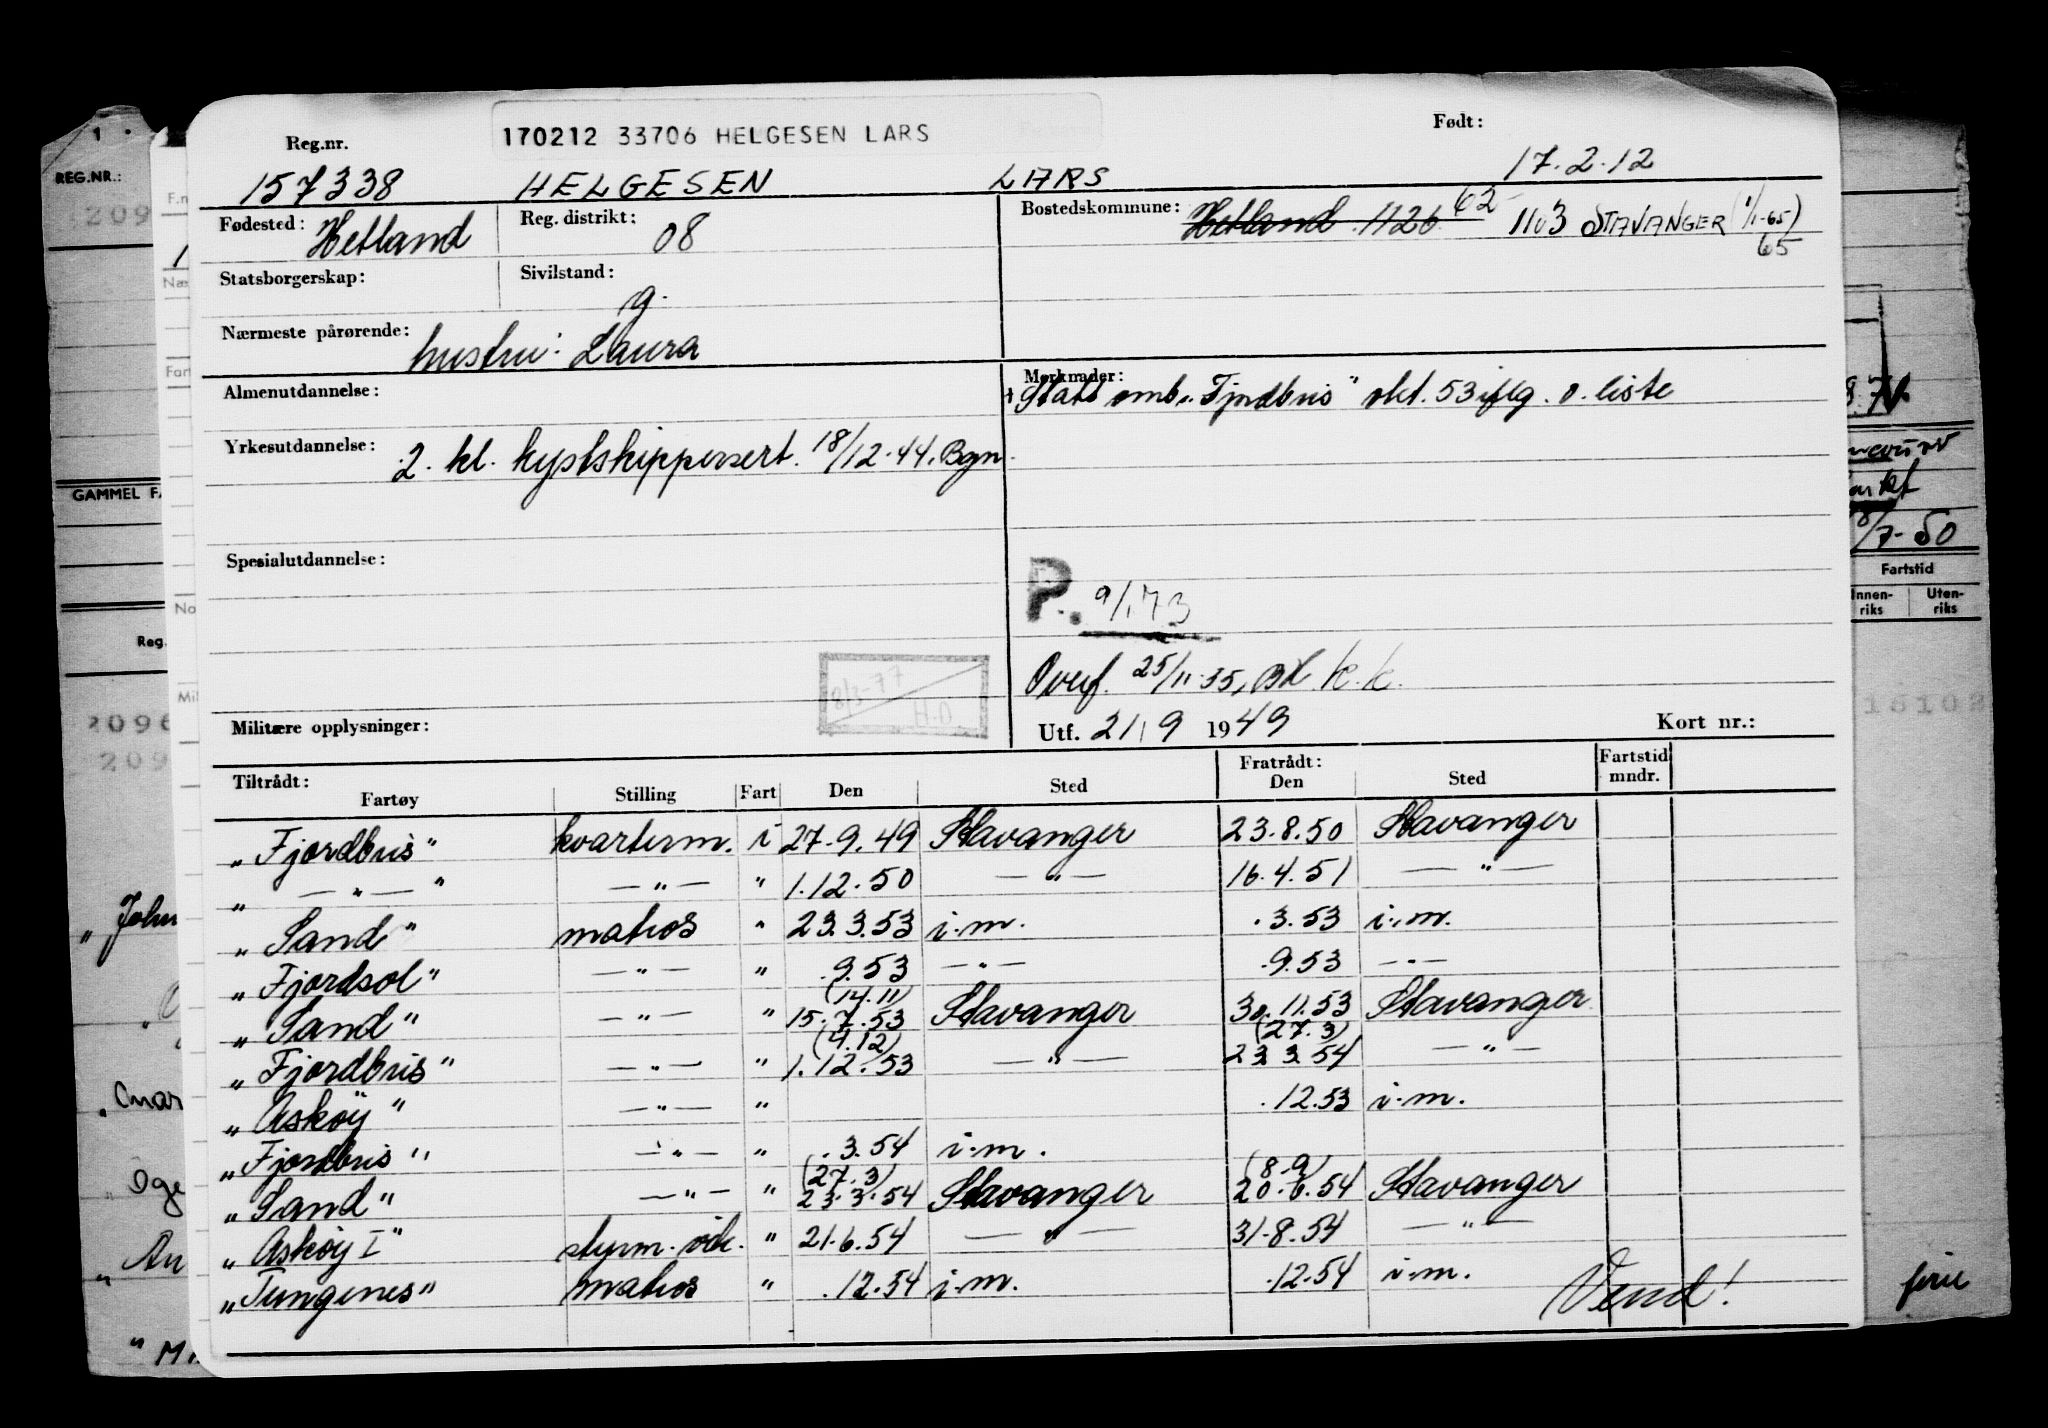 170212 33706 HELGESEN LARS
Reg.nr. Født:
157338 HELGESEN LARS 17.2.12
Fødested: Hetland Reg. distrikt: 08 Bostedskommune: Hetland 1126 62 1103 STAVANGER (1/1-65) 65
Statsborgerskap: Sivilstand: g.
Nærmeste pårørende: hustru: Laura
Almenutdannelse: Merknader:
Statt omb. "Fjordbris" okt. 53 iflg. o. liste
Yrkesutdannelse: 2. kl. kystskippersert. 18/12.44. Bgn.
Spesialutdannelse:
P. 9/1 73
8/3-77 H.O
Overf. 25/11.55, Bd. k.k.
Militære opplysninger: Utf. 21/9 1949 Kort nr.:
Tiltrådt: Fratrådt: Fartstid
Fartøy Stilling Fart Den Sted Den Sted mndr.
"Fjordbris" kvarterm. i 27.9.49 Stavanger 23.8.50 Stavanger
" — " — " — " — " 1.12.50 — " — 16.4.51 — " —
"Sand" matros " 23.3.53 i.m. .3.53 i.m.
"Fjordsol" — " — " .9.53 — " — .9.53 — " —
(14.11)
"Sand" — " — " 15.7.53 Stavanger 30.11.53 Stavanger
(4.12) (27.3)
"Fjordbris" — " — " 1.12.53 — " — 23.3.54 — " —
"Askøy" — " — " .12.53 i.m.
"Fjordbris" — " — " .3.54 i.m.
(27.3) (8.9)
"Sand" — " — " 23.3.54 Stavanger 20.6.54 Stavanger
"Askøy I" styrm. vik. " 21.6.54 — " — 31.8.54 — " —
"Tungenes" matros " .12.54 i.m. .12.54 i.m.
Vend!
1
REG.NR.:
209
GAMMEL FA
Reg.
2096
209
"John
"Oge
"An
F.n
Næ
Fart
No
Mil
8.71
/7-50
Fartstid
Innen-
riks Uten-
riks